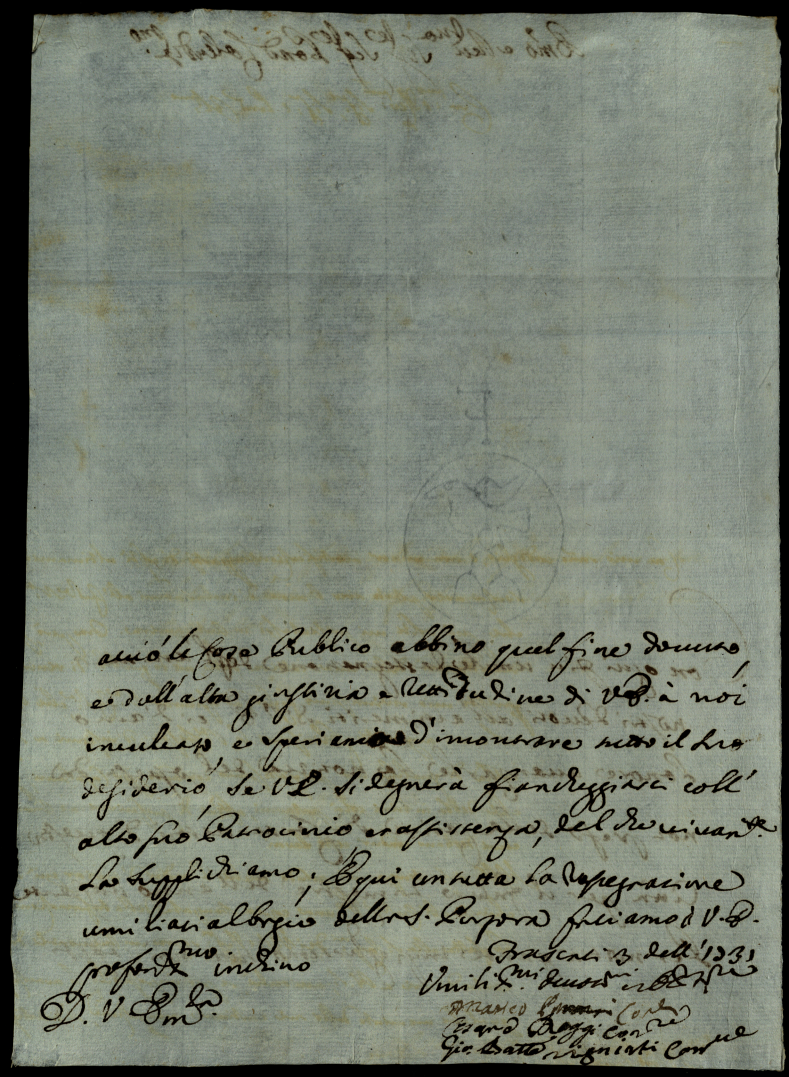 acciò le Cose Publico abbino quel fine douuto,
e dall'alta giustizia e rettitudine di V. E. à noi
inculcato, e speriamo d'imostrare tutto il suo
desiderio, se V. E. si degnerà fiancheggiarci coll'
alto suo Patrocinio et assistenza, del che
La supplichiamo; E qui con tutta la rassegnazione
umiliati al bagio della S. Porpora facciamo à V. E.
profond.mo inchino
Frascati 3 dell' 1731
D. V. Em.za
Umiliss.mi deuot.mi
Matteo
Con.re
Gio. Batta Con.re